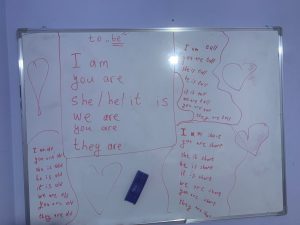 to "be"
I am
you are
she/he/it is
we are
you are
they are
I am old
you are old
she is old
he is old
it is old
we are old
you are old
they are old
I am tall
you are tall
she is tall
he is tall
it is tall
we are tall
you are tall
they are tall
I am short
you are short
she is short
he is short
it is short
we are short
you are short
they are